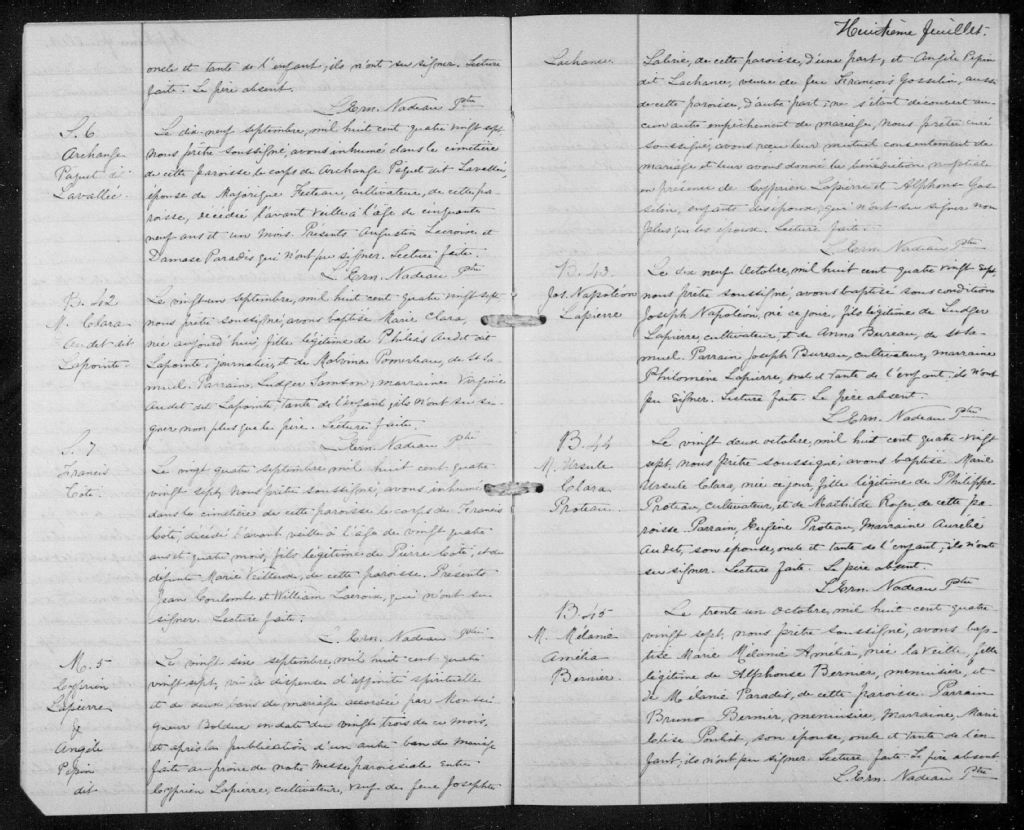 oncle et tante de l'enfant; ils n'ont su signer. Lecture
faite. Le père absent.
L. Ern. Nadeau Ptre
S. 6
Archange
Paquet dit
Lavallée.
Le dix-neuf septembre, mil huit cent quatre vingt sept
nous prêtre soussigné, avons inhumé dans le cimetière
de cette paroisse le corps de Archange Paquet dit Lavallée,
épouse de Majorique Fecteau, cultivateur, de cette pa-
roisse, décédée l'avant veille à l'âge de cinquante
neuf ans et un mois. Présents Augustin Lacroix et
Damase Paradis qui n'ont pu signer. Lecture faite.
L. Ern. Nadeau Ptre
B. 42
M. Clara
Audet dit
Lapointe.
Le vingt-un septembre, mil huit cent quatre vingt sept
nous prêtre soussigné, avons baptisé Marie Clara,
née aujourd'hui, fille légitime de Philéas Audet dit
Lapointe, journalier, et de Malvina Pomerleau, de St Sa-
muel. Parrain Ludger Samson, marraine Virginie
Audet dit Lapointe, tante de l'enfant, ils n'ont su si-
gner non plus que le père. Lecture faite.
L. Ern. Nadeau Ptre
S. 7
Francis
Coté.
Le vingt quatre septembre, mil huit cent quatre
vingt sept, nous prêtre soussigné, avons inhumé
dans le cimetière de cette paroisse le corps de Francis
Coté, décédé l'avant veille à l'âge de vingt quatre
ans et quatre mois, fils légitime de Pierre Coté, et de
défunte Marie, de cette paroisse. Présents
Jean Coulombe et William Lacroix, qui n'ont su
signer. Lecture faite.
L. Ern. Nadeau Ptre
M. 5
Cyprien
Lapierre
&
Angèle
Pépin
dit
Le vingt six septembre, mil huit cent quatre
vingt sept, vu la dispense d'affinité spirituelle
et de deux bans de mariage accordée par Monsei-
gneur Bolduc en date du vingt trois de ce mois,
et après la publication d'un autre ban de mariage
faite au prône de notre messe paroissiale entre
Cyprien Lapierre, cultivateur, veuf de feue Josephte
Huitième feuillet.
Lachance.
Labrie, de cette paroisse, d'une part, et Angèle Pépin
dit Lachance, veuve de feu François Gosselin, aussi
de cette paroisse, d'autre part; ne s'étant découvert au-
cun autre empêchement de mariage, Nous prêtre curé
soussigné, avons reçu leur mutuel consentement de
mariage et leur avons donné la bénédiction nuptiale
en présence de Cyprien Lapierre et Alphonse Gos-
selin, enfants des époux, qui n'ont su signer non
plus que les époux. Lecture faite.
L. Ern. Nadeau Ptre
B. 43.
Jos. Napoléon
Lapierre
Le dix neuf Octobre, mil huit cent quatre vingt sept
nous prêtre soussigné, avons baptisé sous condition
Joseph Napoléon, né ce jour, fils légitime de Ludger
Lapierre, cultivateur, et de Anna Bureau, de St Sa-
muel. Parrain Joseph Bureau, cultivateur, marraine
Philomène Lapierre, oncle et tante de l'enfant; ils n'ont
pu signer. Lecture faite. Le père absent.
L. Ern. Nadeau Ptre
B. 44
M. Ursule
Clara
Proteau.
Le vingt deux octobre, mil huit cent quatre-vingt
sept, nous prêtre soussigné, avons baptisé Marie
Ursule Clara, née ce jour, fille légitime de Philippe
Proteau, cultivateur, et de Mathilde Roger, de cette pa-
roisse. Parrain, Eugène Proteau, Marraine Aurélie
Audet, son épouse, oncle et tante de l'enfant, ils n'ont
su signer. Lecture faite. Le père absent.
L. Ern. Nadeau Ptre
B. 45
M. Mélanie
Amélia
Bernier.
Le trente un octobre, mil huit cent quatre
vingt sept, nous prêtre soussigné, avons bap-
tisé Marie Mélanie Amélia, née la veille, fille
légitime de Alphonse Bernier, menuisier, et
de Mélanie Paradis, de cette paroisse. Parrain
Bruno Bernier, menuisier, Marraine, Marie
Elise Pouliot, son épouse, oncle et tante de l'en-
fant, ils n'ont pu signer. Lecture faite. Le père absent
L. Ern. Nadeau Ptre